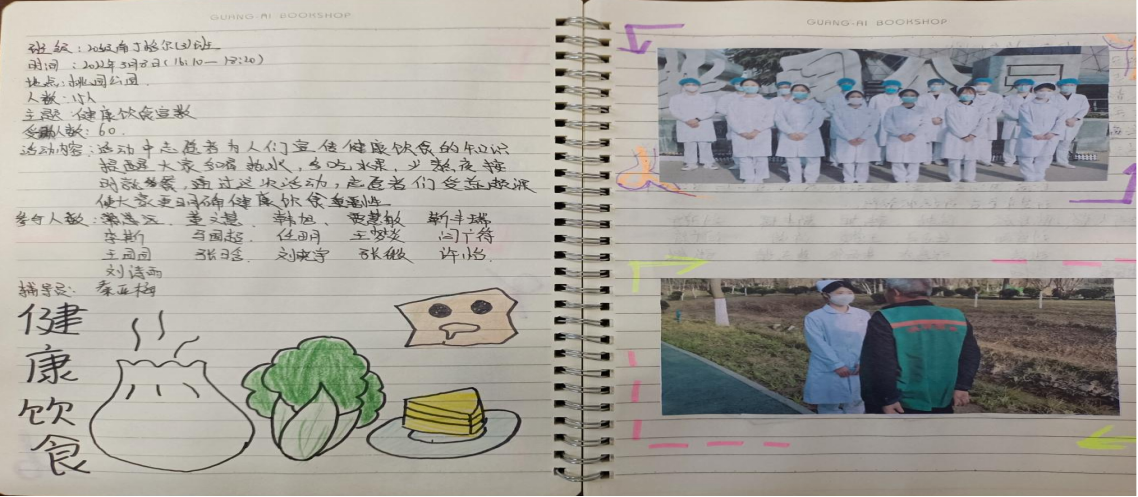 GUANG-AI BOOKSHOP
班级：20级南丁格尔(3)班
时间：2022年3月8日(16:10—17:20)
地点：桃园公园
人数：15人
主题：健康饮食宣教
受教人数：60
活动内容：活动中志愿者为人们宣传健康饮食的知识
提醒大家多喝热水，多吃水果，少熬夜
通过这次活动，志愿者们受益
使大家更明确健康饮食
参与人数：董文慧 韩旭
李斯 任明 王梦炎
王园园 张
刘诗雨
辅导员：秦亚梅
健康饮食
GUANG-AI BOOKSHOP